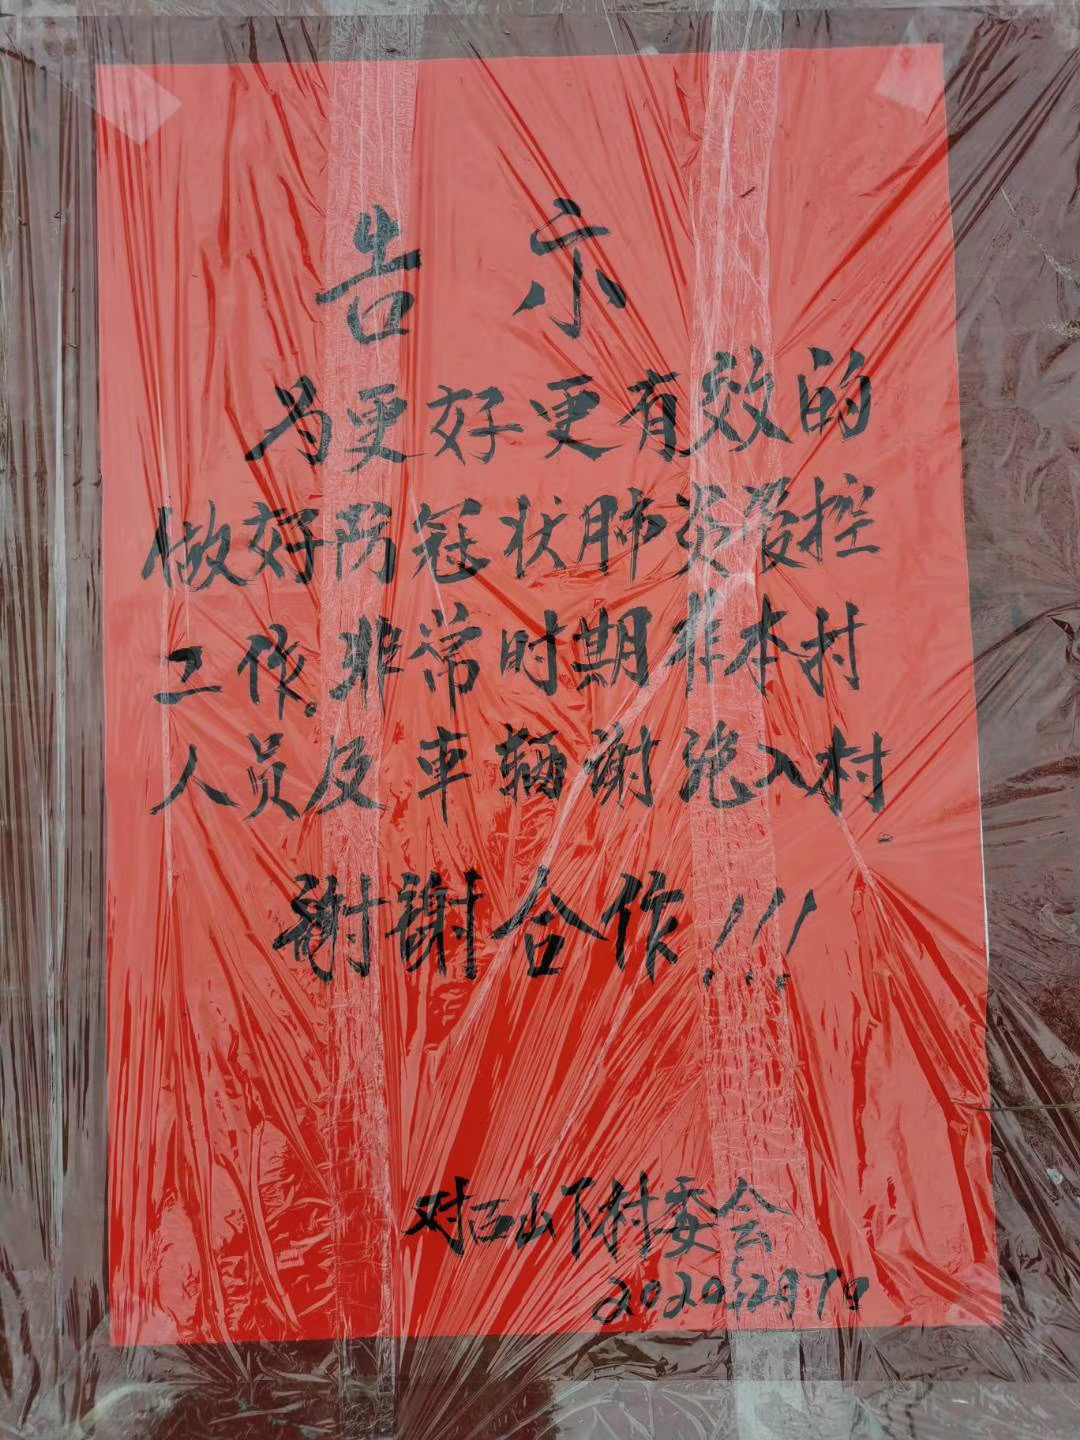 告示
为更好更有效的
做好防冠状肺炎控
工作。非常时期非本村
人员及车辆谢绝入村
谢谢合作!!!
对山下村委会
2020.2月7日